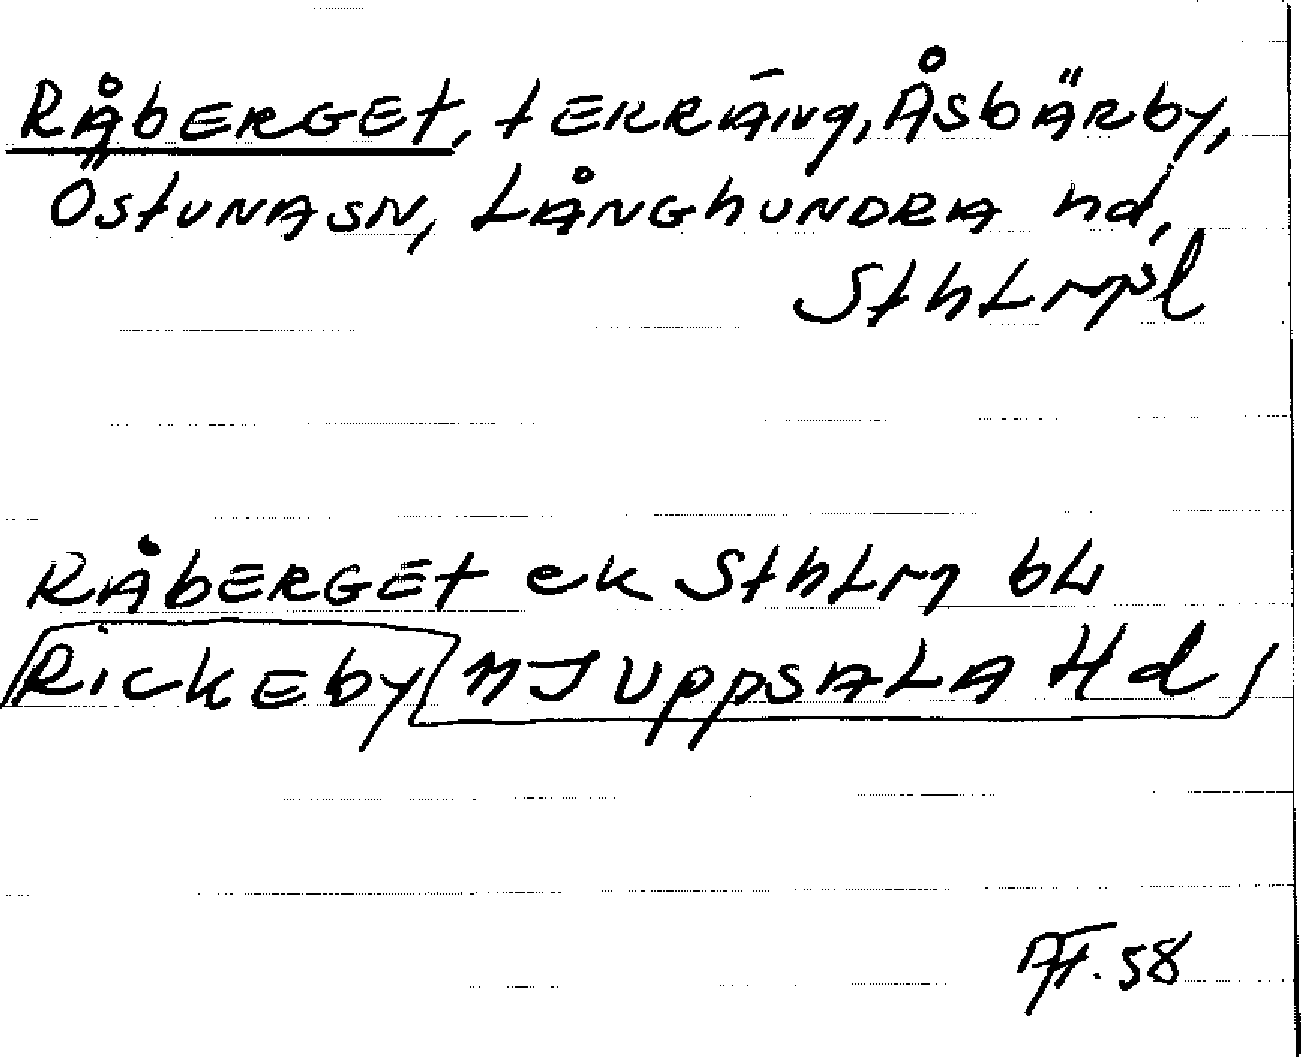 Råberget, terräng, Åsbärby,
Östuna sn, Långhundra hd,
Sthlms l
Råberget ek Sthlm bl
Rickeby NJ Uppsala Hd
58